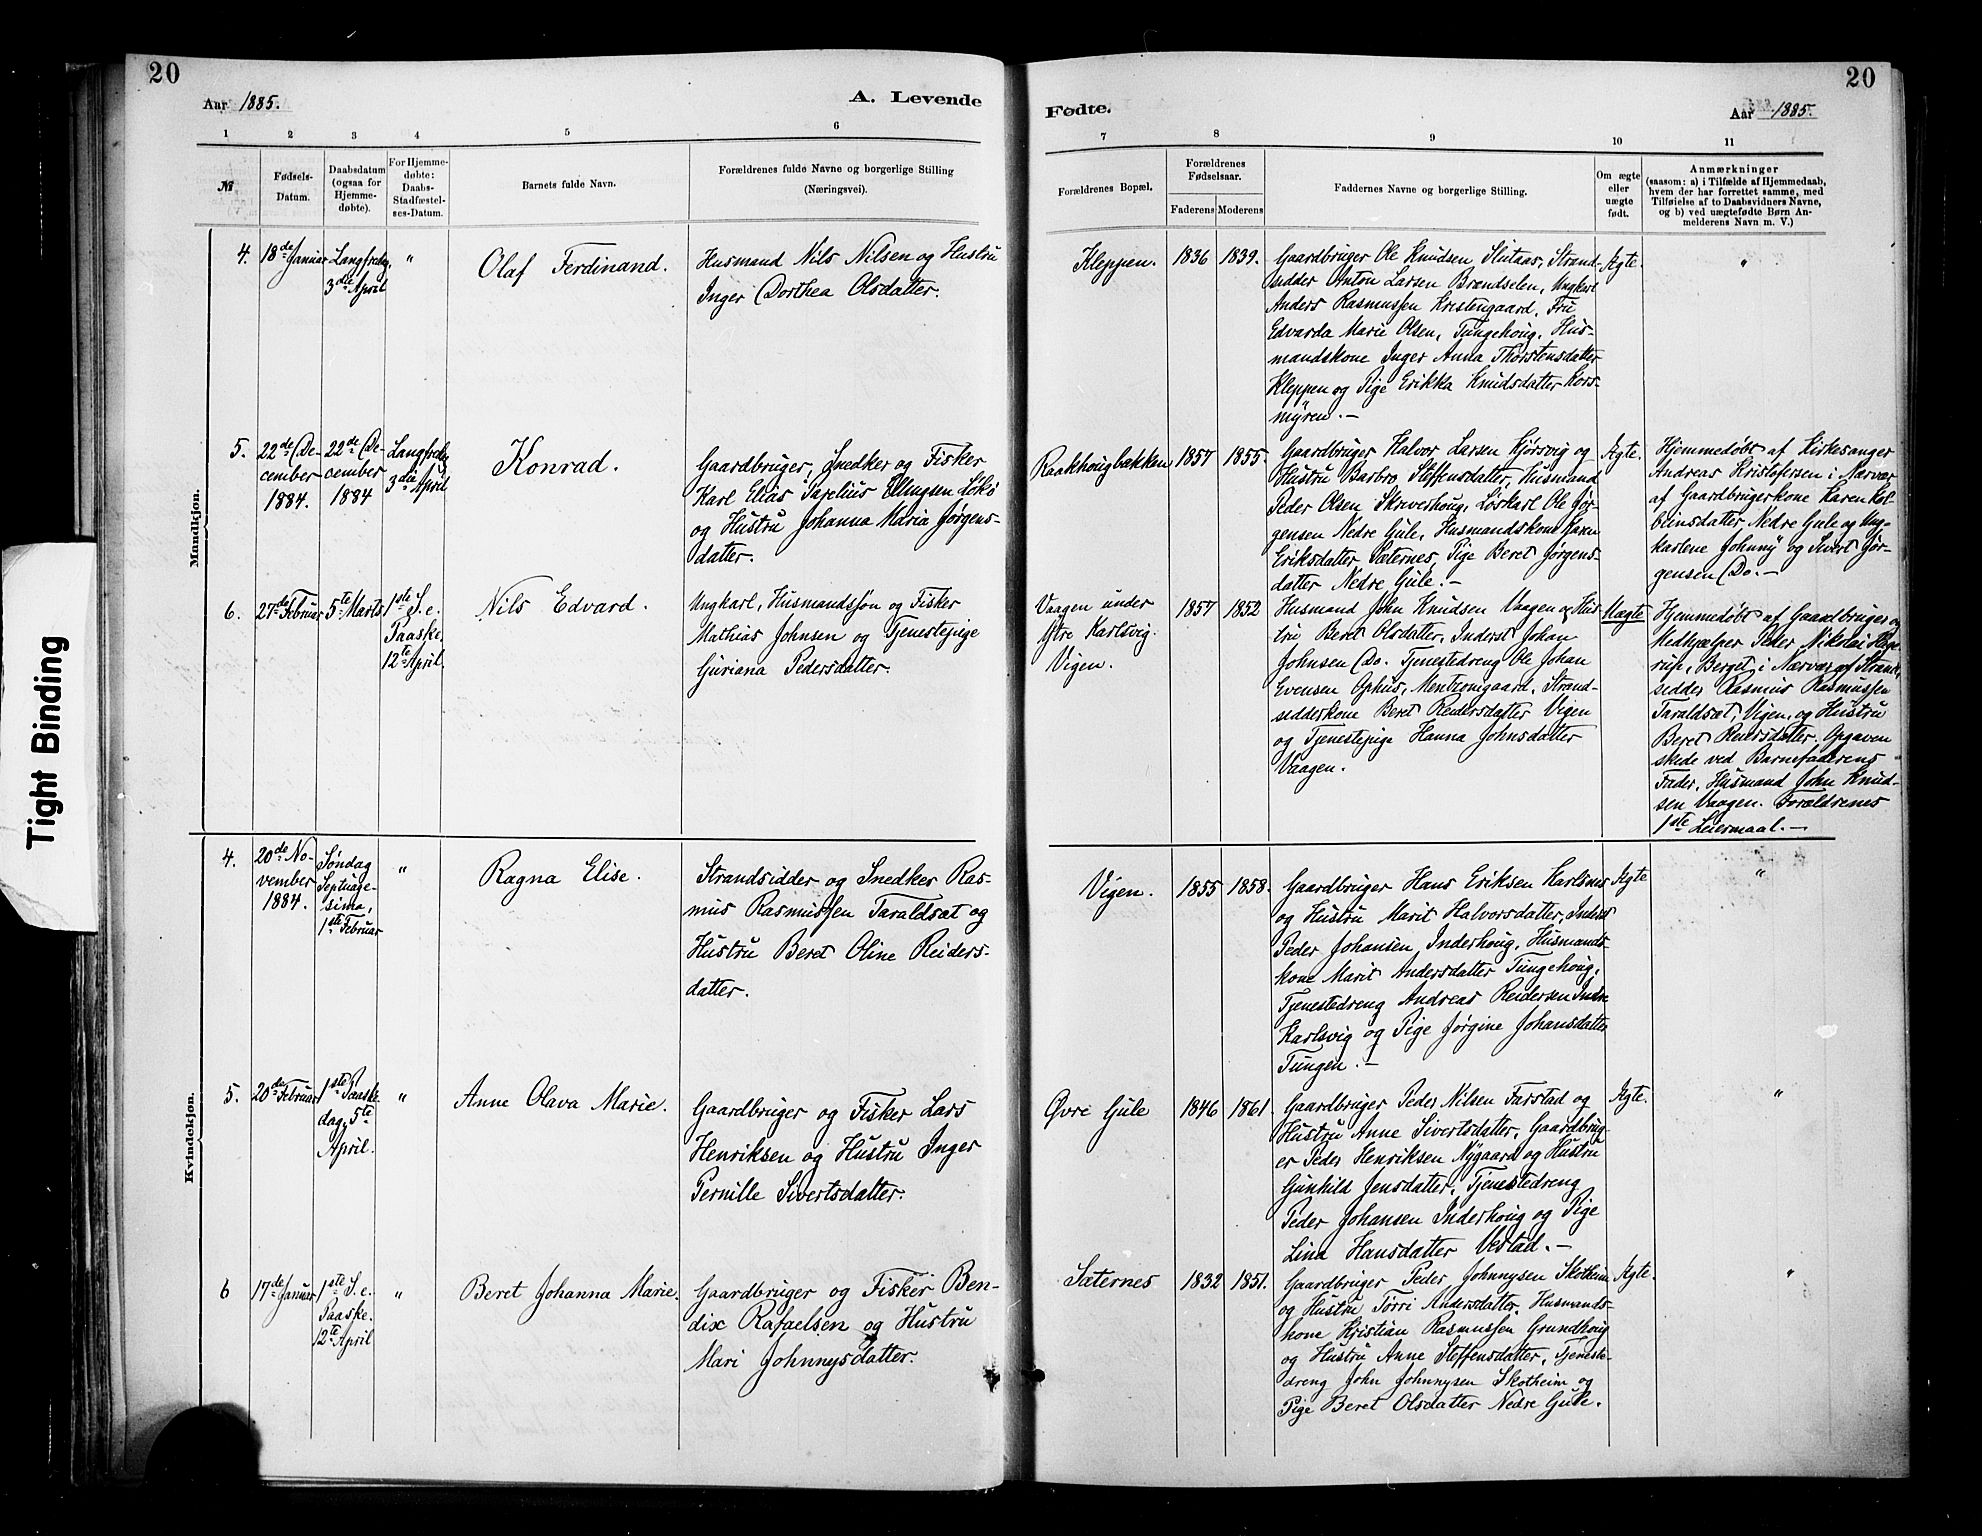 20
20
Aar 1885.
A. Levende
Fødte.
Aar 1885.
1 2 3 4 5 6
7 8 9 10 11
№
Fødsels-
Datum.
Daabsdatum
(ogsaa for
Hjemme-
døbte).
For Hjemme-
døbte:
Daabs-
Stadfæstel-
ses-Datum.
Barnets fulde Navn.
Forældrenes fulde Navne og borgerlige Stilling
(Næringsvei).
Forældrenes Bopæl.
Forældrenes
Fødselsaar.
Faderens Moderens
Faddernes Navne og borgerlige Stilling.
Om ægte
eller
uægte
født.
Anmærkninger
(saasom: a) i Tilfælde af Hjemmedaab,
hvem der har forrettet samme, med
Tilføielse af to Daabsvidners Navne,
og b) ved uægtefødte Børn An-
melderens Navn m. V.)
Mandkjøn.
4.
18de Januar
Langfredag
3die April
"
Olaf Ferdinand.
Husmand Nils Nilsen og Hustru
Inger Dorthea Olsdatter.
Kleppen.
1836
1839.
Gaardbruger Ole Knudsen Slutaas, Strand-
sidder Anton Larsen Brendselen, Ungkarl
Anders Rasmussen Kristengaard, Fru
Edvarda Marie Olsen, Tungehoug, Hus-
mandskone Inger Anna Thorstensdatter
Kleppen og Pige Erikka Knudsdatter Kors-
myren. -
Ægte.
"
5.
22de De-
cember
1884.
22de De-
cember
1884
Langfredag
3die April
Konrad.
Gaardbruger, Snedker og Fisker
Karl Elias Parelius Ellingsen Løkø
og Hustru Johanna Maria Jørgens-
datter.
Raakhougbækken
1857
1855.
Gaardbruger Halvor Larsen Kjørsvig og
Hustru Barbro Steffensdatter, Husmand
Peder Olsen Skriverhoug, Løskarl Ole Jør-
gensen Nedre Gule, Husmandskone Karen
Eriksdatter Sæternes, Pige Beret Jørgens-
datter Nedre Gule. -
Ægte.
Hjemmedøbt af Kirkesanger
Andreas Kristofersen i Nærvær
af Gaardbrugerkone Karen Kol-
beinsdatter Nedre Gule og Ung-
karlene Johnny og Sivert Jør-
gensen Do. -
6.
27de Februar
5te Marts
1ste S. e.
Paaske,
12te April.
Nils Edvard.
Ungkarl, Husmandssøn og Fisker
Mathias Johnsen og Tjenestepige
Guriana Pedersdatter.
Vaagen under
Ytre Karlsvig.
Vigen.
1857
1852
Husmand John Knudsen Vaagen og Hus-
tru Beret Olsdatter, Inderst Johan
Johnsen Do. Tjenestedreng Ole Johan
Evensen Ophus, Mentzonigaard, Strand-
sidderkone Beret Reidersdatter Vigen
og Tjenestepige Hanna Johnsdatter
Vaagen.
Uægte
Hjemmedøbt af Gaardbruger og
Medhjælper Peder Nikolai Hage-
rup, Berget i Nærvær af Strand-
sidder Rasmus Rasmussen
Taraldsæt, Vigen, og Hustru
Beret Reidersdatter. Opgaven
skede ved Barnefaderens
Fader, Husmand John Knud-
sen Vaagen. Forældrenes
1ste Leiermaal. -
Kvindekjøn.
4.
20de No-
vember
1884.
Søndag
Septuage-
sima,
1ste Februar
"
Ragna Elise.
Strandsidder og Snedker Ras-
mus Rasmussen Taraldsæt og
Hustru Beret Oline Reiders-
datter.
Vigen.
1855
1858.
Gaardbruger Hans Eriksen Karlsnes
og Hustru Marit Halvorsdatter, Inderst
Peder Johansen Inderhoug, Husmands-
kone Marit Andersdatter Tungehoug,
Tjenestedreng Andreas Reidersen Indre
Karlsvig og Pige Jørgine Johansdatter
Tungen. -
Ægte
"
5.
20de Februar
1ste Paaske-
dag, 5te
April.
"
Anne Olava Marie.
Gaardbruger og Fisker Lars
Henriksen og Hustru Inger
Pernille Sivertsdatter.
Øvre Gule
1846
1861.
Gaardbruger Peder Nilsen Farstad og
Hustru Anne Sivertsdatter, Gaardbrug-
er Peder Henriksen Nygaard og Hustru
Gunhild Jensdatter, Tjenestedreng
Peder Johansen Inderhoug og Pige
Lina Hansdatter Vestad. -
Ægte.
"
6
17de Januar
1ste S. e.
Paaske.
12te April
"
Beret Johanna Marie.
Gaardbruger og Fisker Ben-
dix Rafaelsen og Hustru
Mari Johnnysdatter.
Sæternes
1832
1851.
Gaardbruger Peder Johnnysen Skotheim
og Hustru Torri Andersdatter, Husmands-
kone Kristian Rasmussen Grundhoug
og Hustru Anne Steffensdatter, Tjeneste-
dreng John Johnnysen Skotheim og
Pige Beret Olsdatter Nedre Gule.
Ægte.
"
Tight Binding